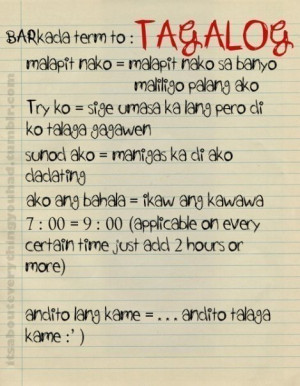 BARkada term to : TAGALOG
malapit nako = malapit nako sa banyo
maliligo palang ako
Try ko = sige umasa ka lang pero di
ko talaga gagawen
sunod ako = manigas ka di ako
dadating
ako ang bahala = ikaw ang kawawa
7 : 00 = 9 : 00 (applicable on every
certain time just add 2 hours or
more)
andito lang kame = . . . andito talaga
kame :' )
itsabouteverythingyouhad.tumblr.com